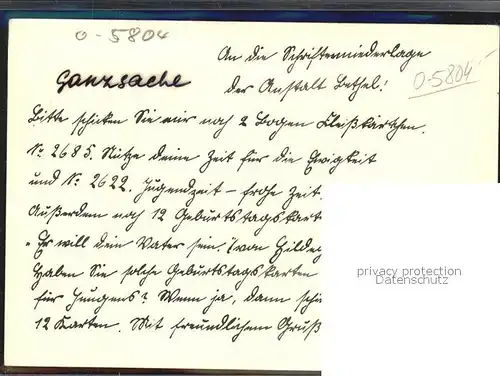 0-5804
An die Schriftenniederlage
Ganzsache
der Anstalt Bethel!
0-5804
Bitte schicken Sie mir noch 2 Bogen Fleißkärtchen.
No 2685. Nütze deine Zeit für die Ewigkeit
und No. 2622. Jugendzeit – frohe Zeit.
Außerdem noch 12 Geburtstagskart
„Er will dein Vater sein." (von Hilde
Haben Sie solche Geburtstagskarten
für Jungens? Wenn ja, dann schi
12 Karten. Mit freundlichem Gruß
privacy protection
Datenschutz